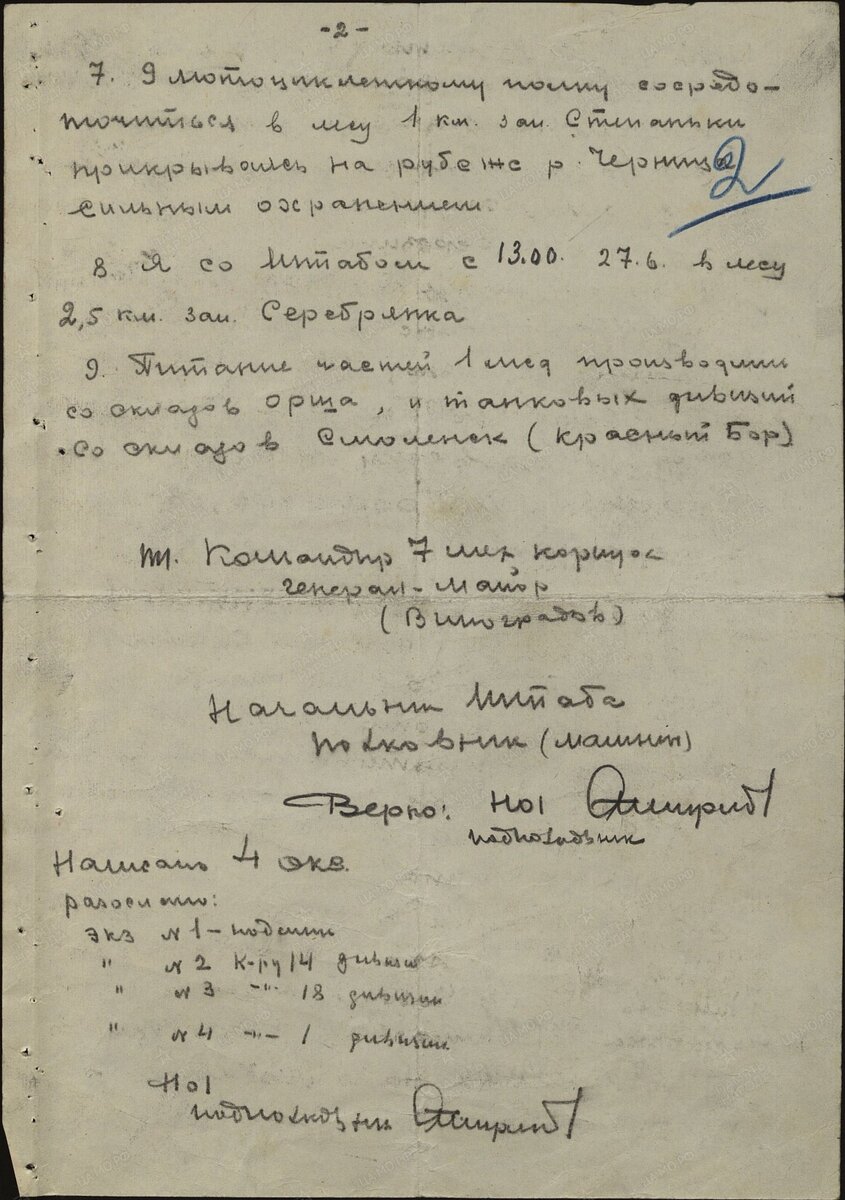 -2-
7. 9 мотоциклетному полку сосредо-
точиться в лесу 1 км. зап. Степаньки
прикрываясь на рубеже р. Черница
2
сильным охранением.
8 Я со Штабом с 13.00. 27.6. в лесу
2,5 км. зап. Серебрянка
9. Питание частей 1 мсд производить
со складов Орша, и танковых дивизий
со складов Смоленск (Красный Бор)
Командир 7 мех корпуса
генерал-майор
(Виноградов)
Начальник Штаба
полковник (Малинин)
Верно: НО1
подполковник
Написано 4 экз.
разослано:
экз №1- подлинн
" №2 к-ру 14 дивизии
" №3 -"- 18 дивизии
" №4 -"- 1 дивизии
НО1
подполковник